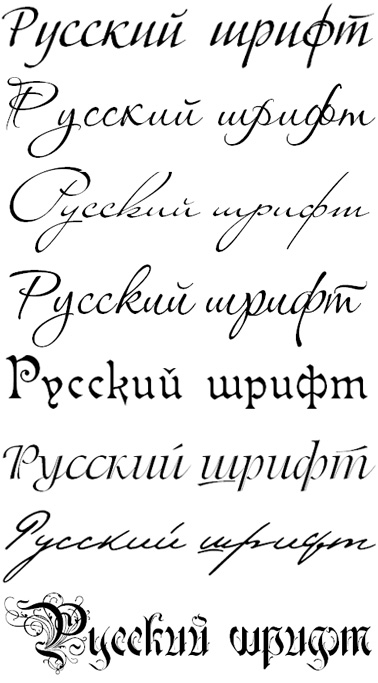 Русский шрифт
Русский шрифт
Русский шрифт
Русский шрифт
Русский шрифт
Русский шрифт
Русский шрифт
Русский шрифт